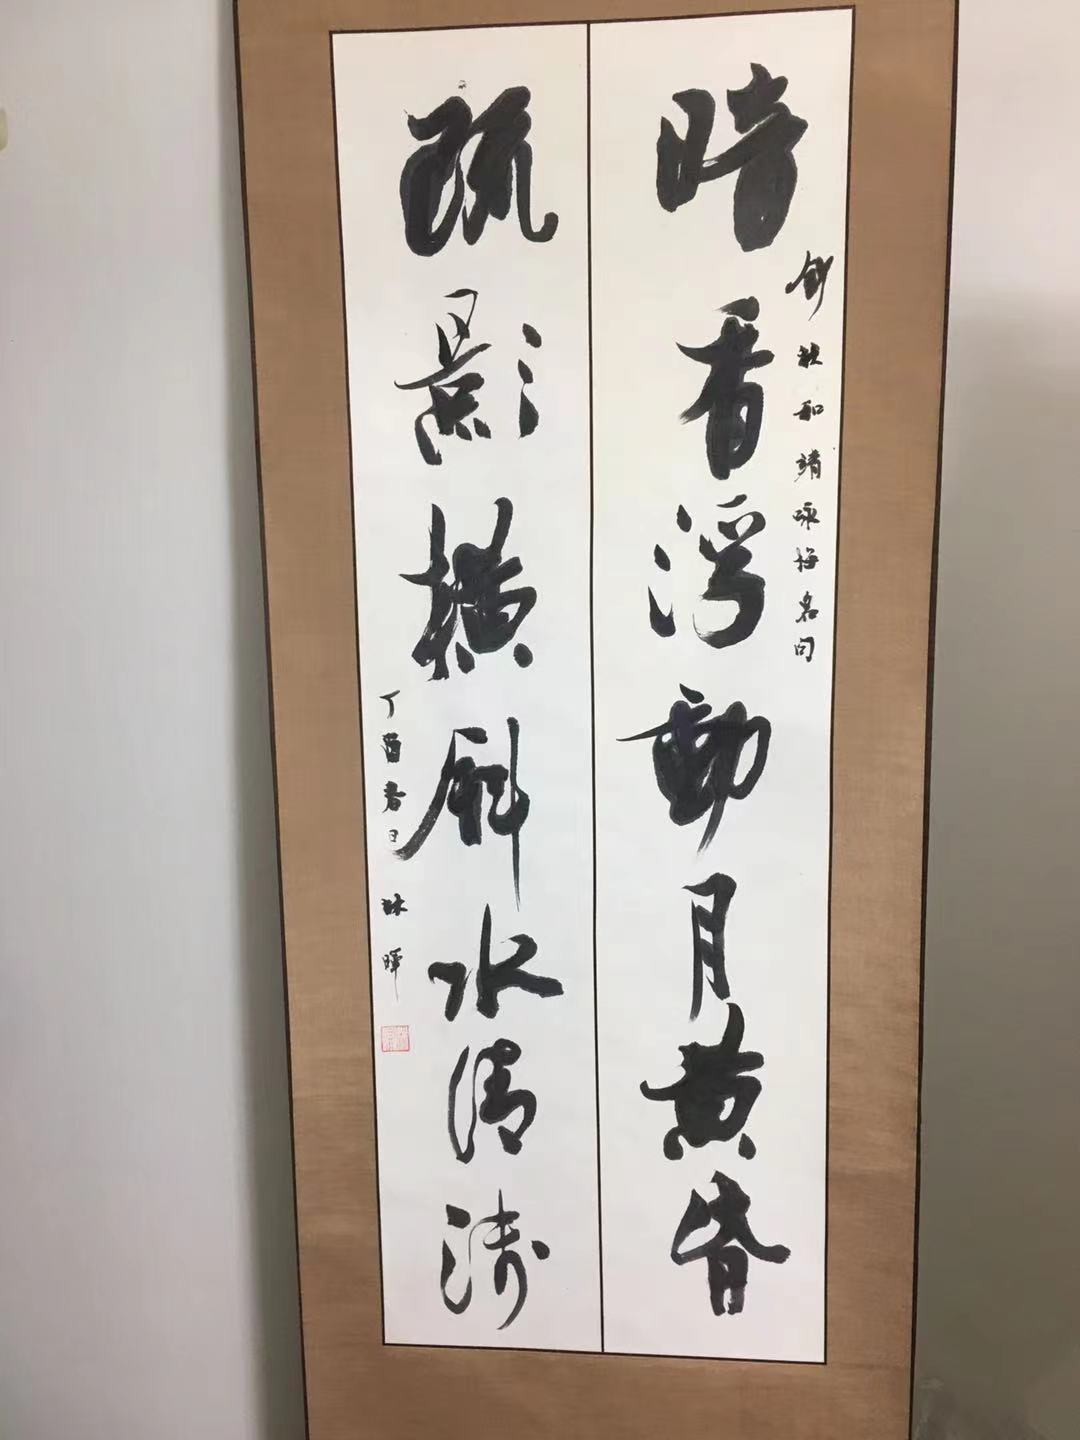 暗香浮動月黄昏
鈔林和靖咏梅名句
疏影横斜水清淺
丁酉春日